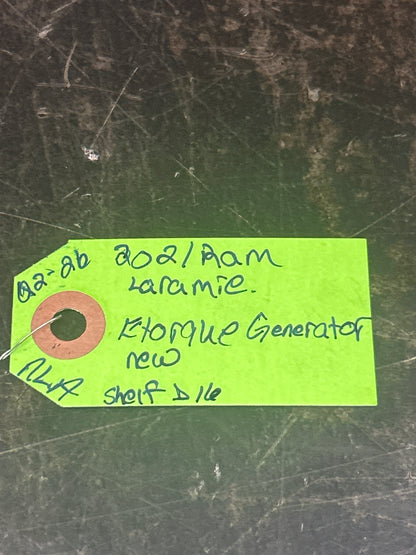 Q2-26
2021 Ram
Laramie.
Etorque Generator
new
Shelf D 16